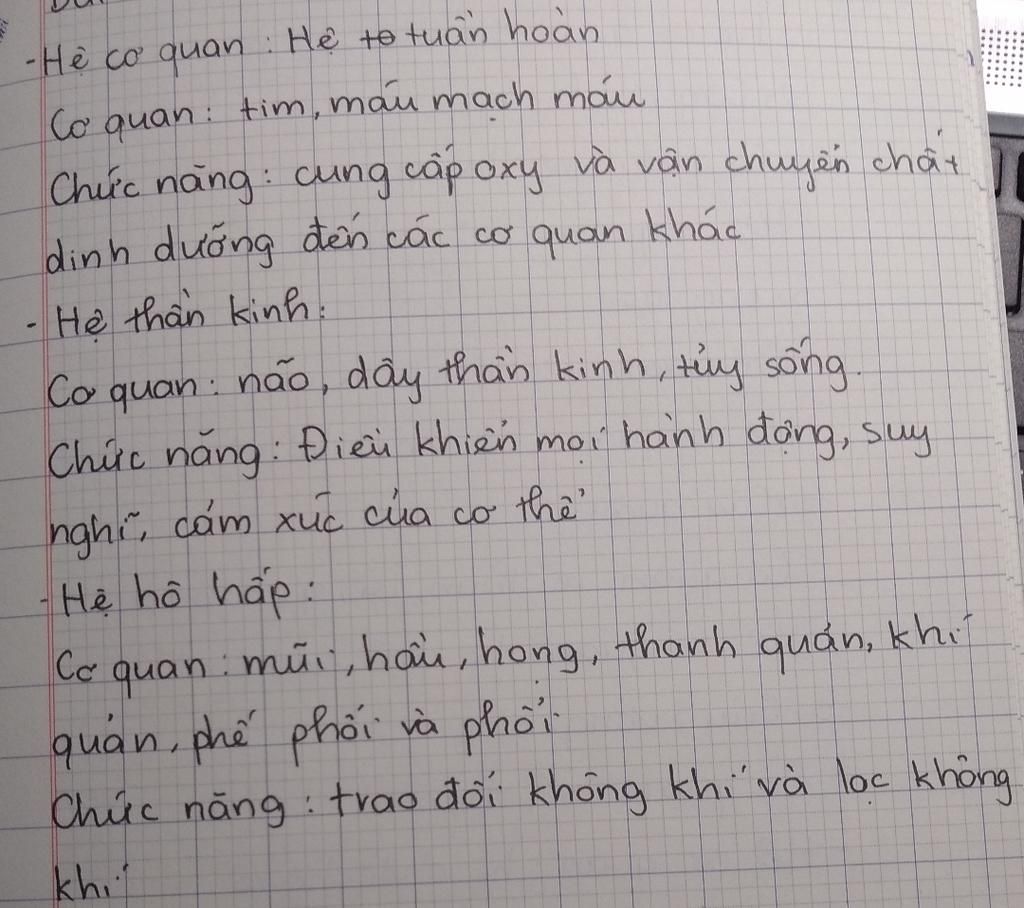 - Hệ cơ quan : Hệ tuần hoàn
Cơ quan : tim, máu mạch máu
Chức năng : cung cấp oxy và vận chuyển chất
dinh dưỡng đến các cơ quan khác
- Hệ thần kinh :
Cơ quan : não, dây thần kinh, tủy sống.
Chức năng : Điều khiển mọi hành động, suy
nghĩ, cảm xúc của cơ thể
- Hệ hô hấp :
Cơ quan : mũi, hầu, họng, thanh quản, khí
quản, phế phối và phổi
Chức năng : trao đổi không khí và lọc không
khí